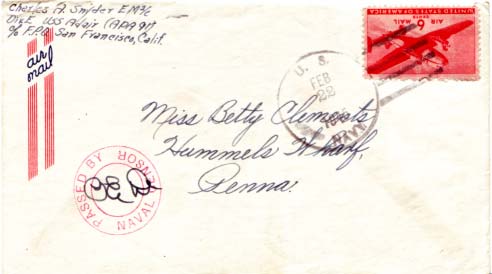 Charles A. Snyder EM 3/c
Div E USS Adair (APA 91)
℅ F.P.O. San Francisco, Calif.
air
mail
UNITED STATES OF AMERICA
6
CENTS
AIR MAIL
U. S.
FEB
22
1945
NAVY
Miss Betty Clements
Hummels Wharf,
Penna.
PASSED BY
NAVAL CENSOR